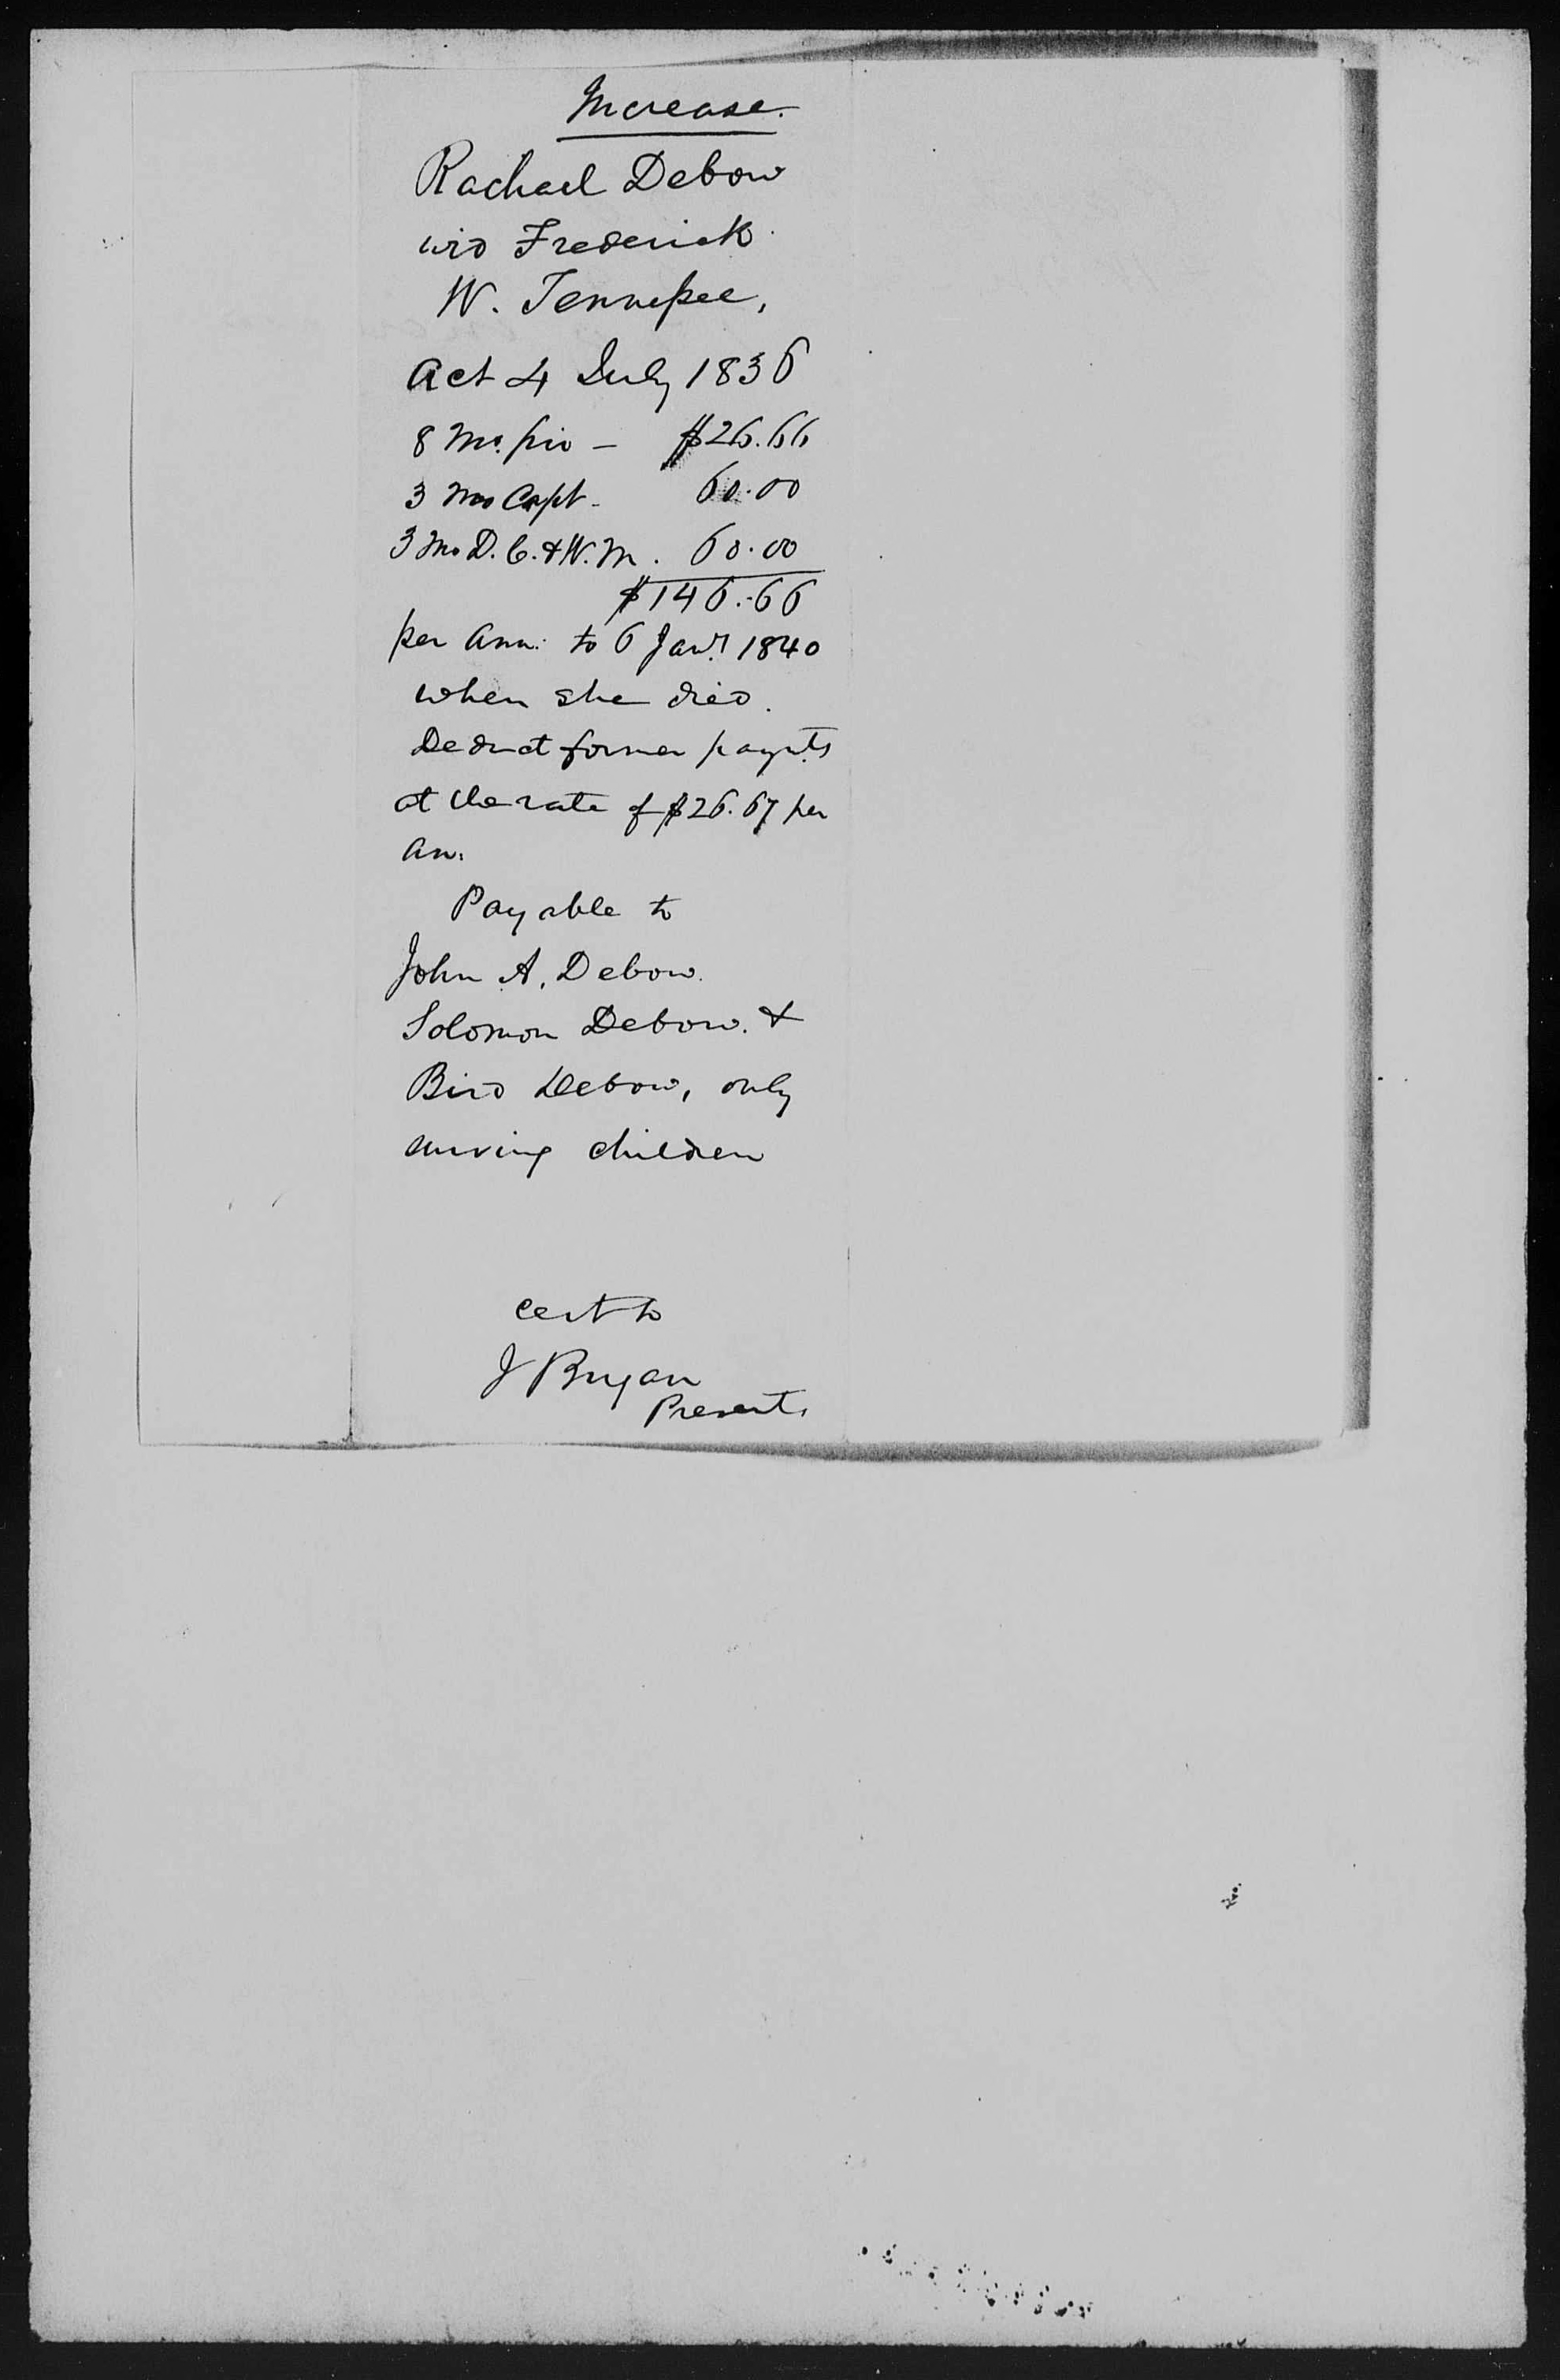 Increase.
Rachael Debow
wid Frederick
W. Tennessee,
Act 4 July 1836
8 Mo. priv — $26.66
3 mo Capt - 60.00
3 Mo D. C. & W. M. 60.00
$146.66
per Ann: to 6 Jany 1840
when she died.
Deduct former paymts
at the rate of $26.67 per
an:
Payable to
John A. Debow.
Solomon Debow. &
Bird Debow, only
surving children
cert to
J Bryan
Present.